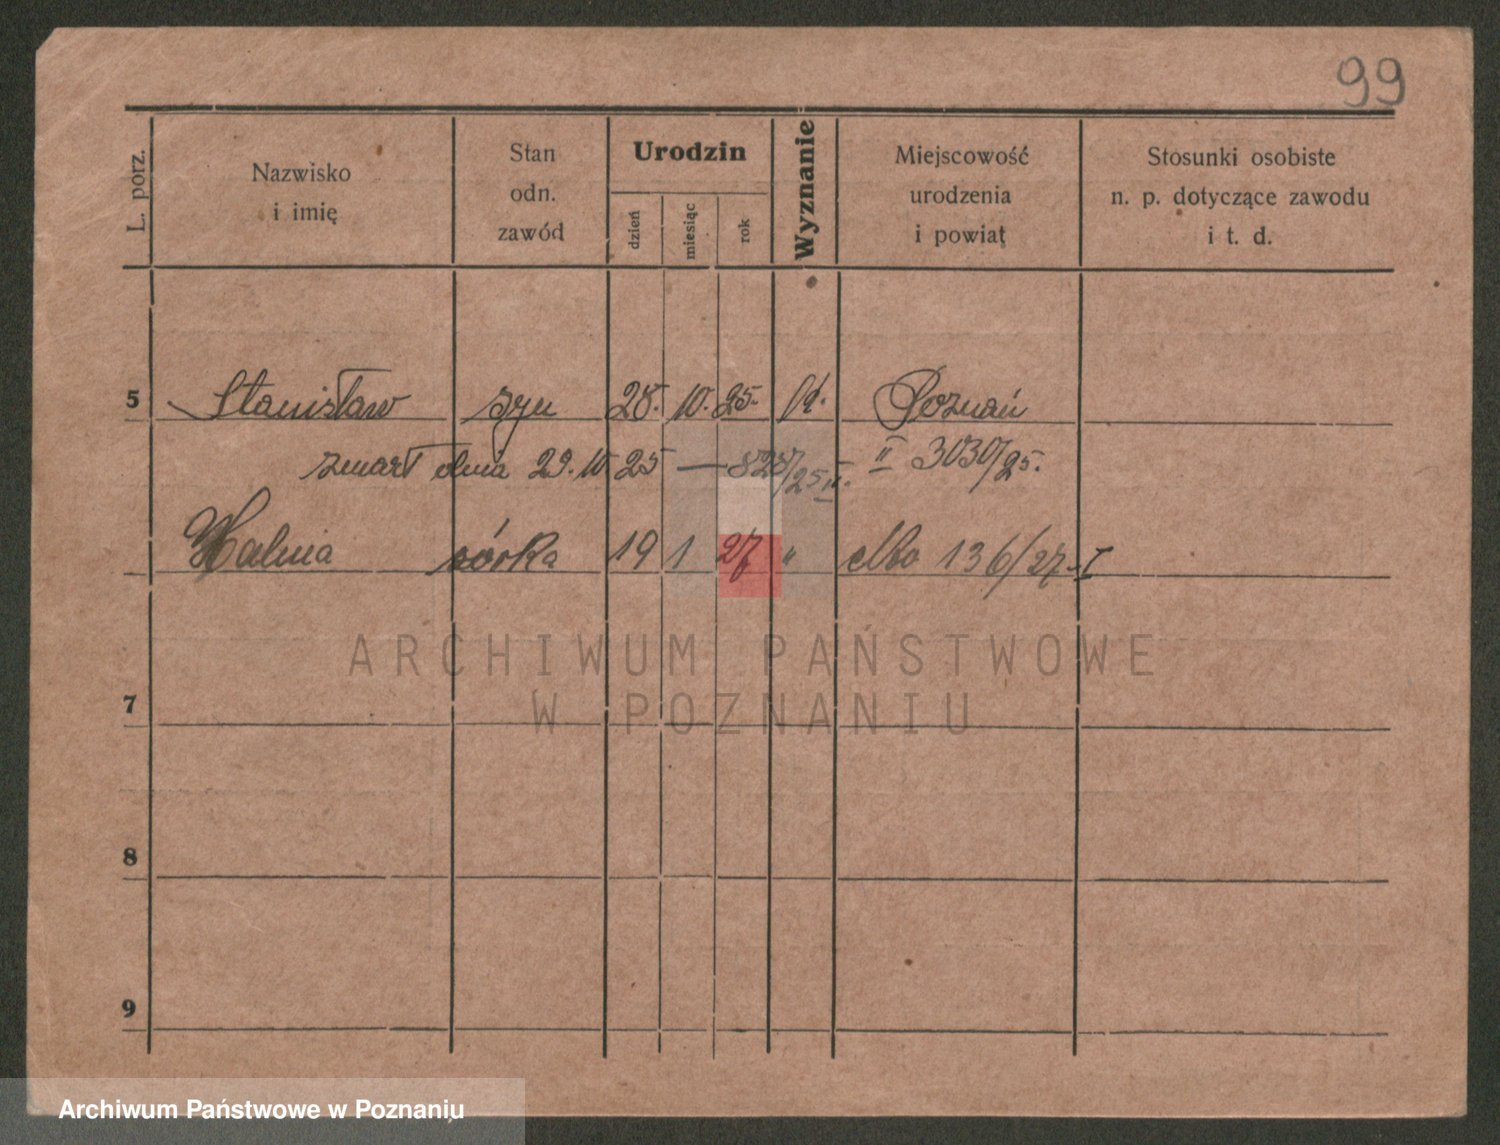 99
L. porz.
Nazwisko
i imię
Stan
odn.
zawód
Urodzin
dzień
miesiąc
rok
Wyznanie
Miejscowość
urodzenia
i powiat
Stosunki osobiste
n. p. dotyczące zawodu
i t. d.
5 Stanisław syn 28. 10. 25. Poznań
zmarł dnia 29. 10 25 — 828/25 II. II 3030/25.
Halina córka 19 1 27 " 136/27 - I
ARCHIWUM PAŃSTWOWE
W POZNANIU
7
8
9
Archiwum Państwowe w Poznaniu